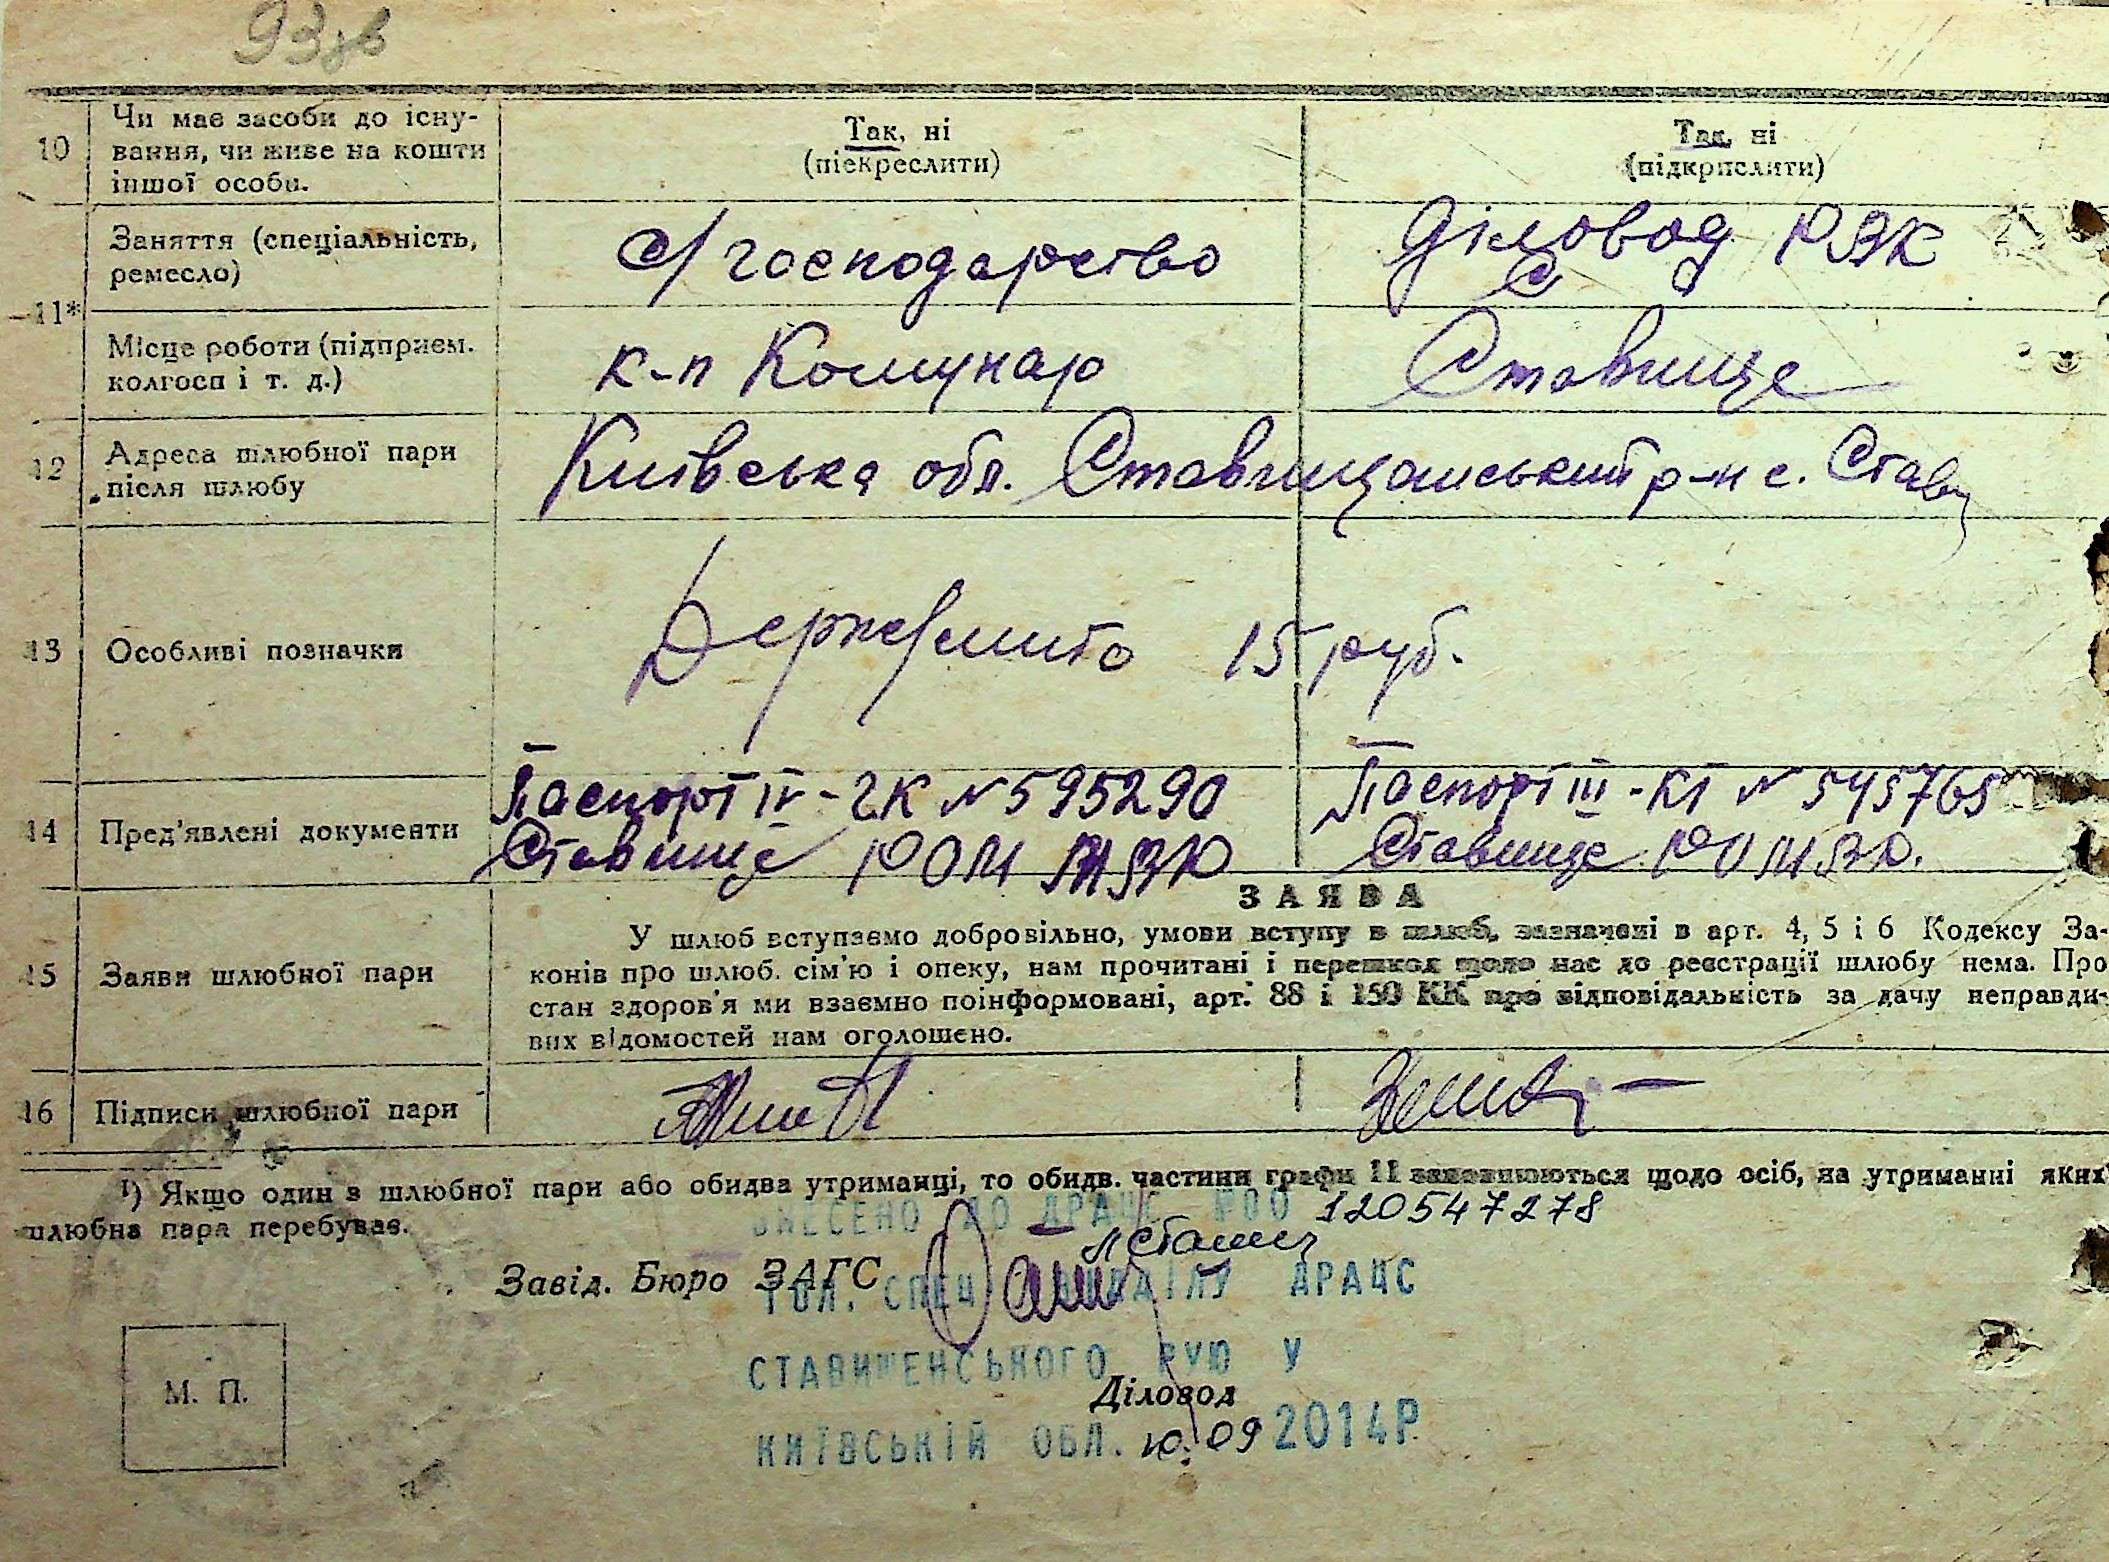 93зв
10 Чи має засоби до існу-
вання, чи живе на кошти
іншої особи.
Так, ні
(піекреслити)
Так, ні
(підкрислити)
11*
Заняття (спеціальність,
ремесло)
с/господарство
Діловод РВК
Місце роботи (підприєм.
колгосп і т. д.)
к-п Комунар
Ставище
12 Адреса шлюбної пари
після шлюбу
Київська обл. Ставищанський р-н с. Ставищ
13 Особливі позначки
Держмито 15 руб.
14 Пред'явлені документи
Паспорт IV-ЧК № 595290
Ставище РОМ
Паспорт III-КТ № 545765
Ставище РОМ
15 Заяви шлюбної пари
ЗАЯВА
У шлюб вступаємо добровільно, умови вступу в шлюб, зазначені в арт. 4, 5 і 6 Кодексу За-
конів про шлюб. сім'ю і опеку, нам прочитані і перешкод щодо нас до реєстрації шлюбу нема. Про
стан здоров'я ми взаємно поінформовані, арт. 88 і 150 КК про відповідальність за дачу неправди-
вих відомостей нам оголошено.
16 Підписи шлюбної пари
¹) Якщо один з шлюбної пари або обидва утриманці, то обидв. частини графи 11 заповнюються щодо осіб, на утриманні яких
шлюбна пара перебуває.
ВНЕСЕНО ДО ДРАЦС №00 120547278
Завід. Бюро ЗАГС
ГОЛ. СПЕЦ ВІДДІЛУ ДРАЦС
СТАВИЩЕНСЬКОГО РУЮ У
М. П.
Діловод
КИЇВСЬКІЙ ОБЛ. 10.09 2014Р